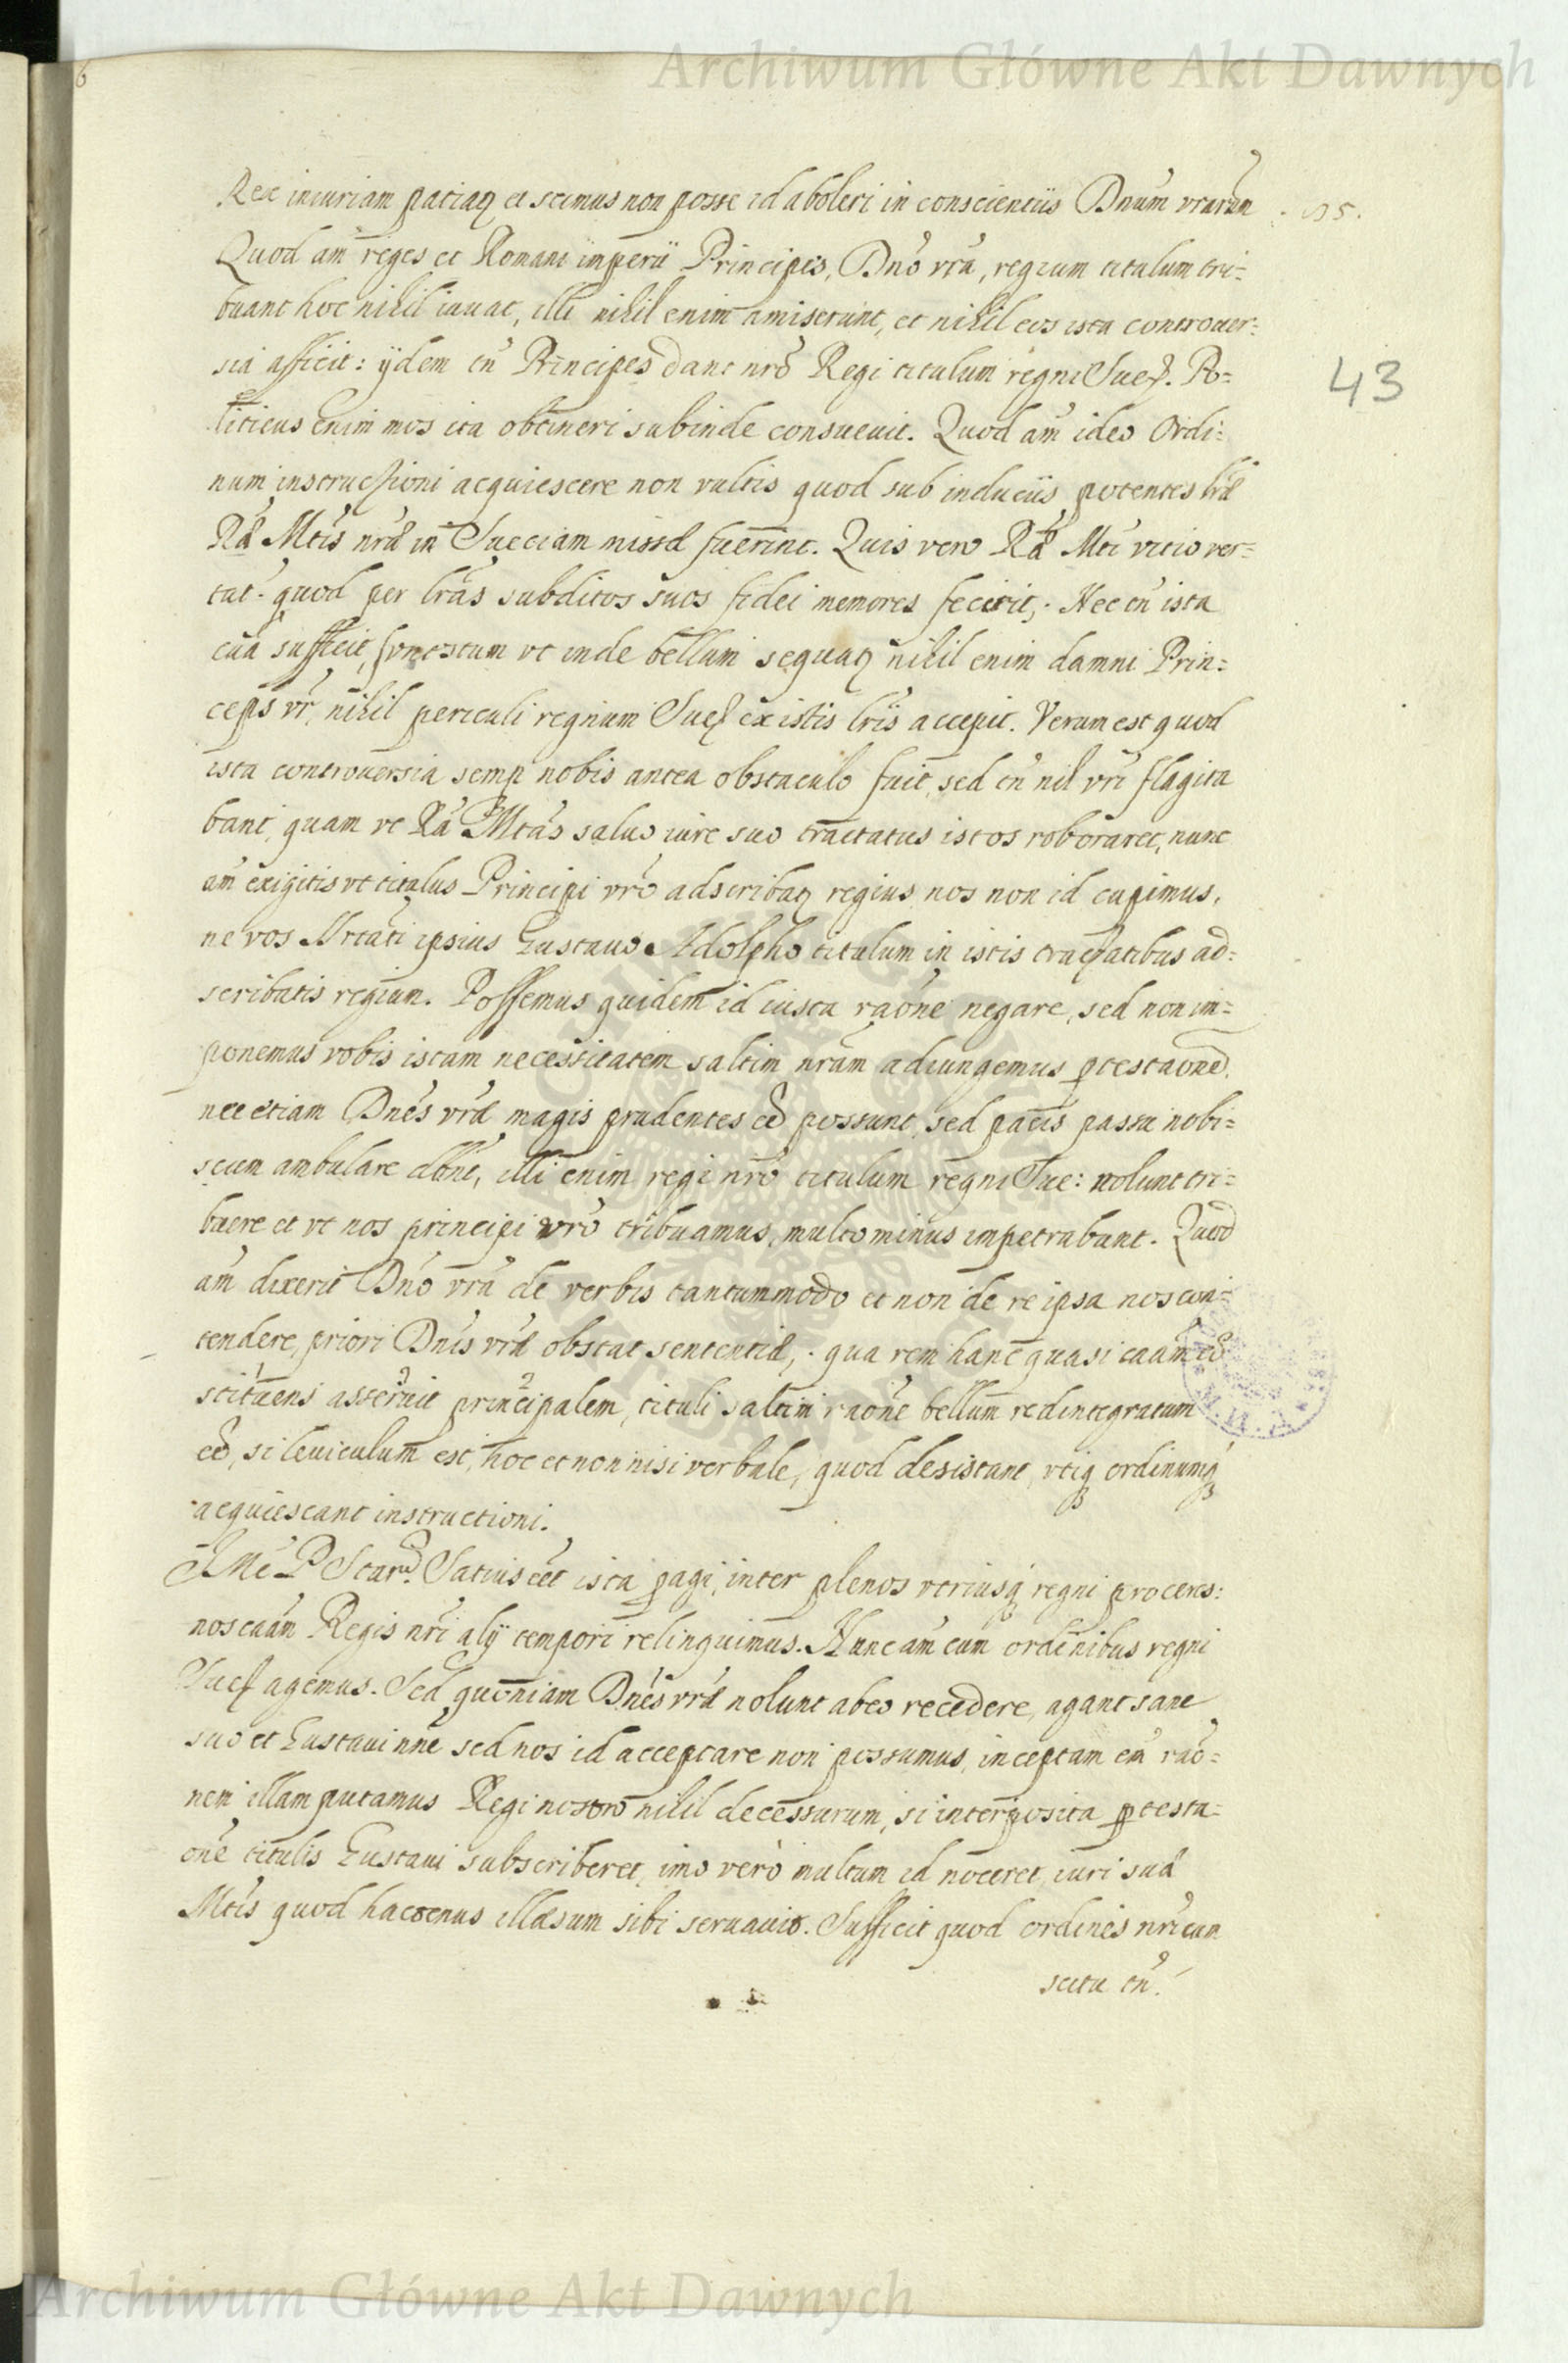 Archiwum Główne Akt Dawnych
6
Rex iniuriam patiaꝶ et scimus non posse id aboleri in conscientiis Dnum vrarum
95.
Quod am̃ reges et Romani imperii Principes, Dno vrã, regium titulum tri-
buant hoc nihil iuuat, illi nihil enim amiserunt, et nihil eos ista controuer-
sia afficit: ijdem tñ Principes dant nrõ Regi titulum regni Suec. Po-
43
liticus enim mos ita obtineri subinde consueuit. Quod am̃ ideo Ordi-
num instructioni acquiescere non vultis quod sub induciis potentes lræ
Ræ Mtis nræ in Sueciam missæ fuerint. Quis vero Ræ Mti vitio ver-
tat. quod per lrãs subditos suos fidei memores fecerit, Nec tñ ista
cãa sufficit, funestum vt inde bellum sequaꝶ nihil enim damni Prin-
ceps vr̃, nihil periculi regnum Suec ex istis lrĩs accepit. Verum est quod
ista controuersia semp nobis antea obstaculo fuit, sed tñ nil vrĩ flagita
bant, quam vt Rã Mtãs saluo iure suo tractatus istos roboraret, nunc
am̃ exigitis vt titulus Principi vrõ adscribaꝶ regius nos non id cupimus,
ne vos Mtati ipsius Gustauo Adolpho titulum in istis tractatibus ad-
scribatis regium. Possemus quidem id iusta raõne negare, sed non im-
ponemus vobis istam necessitatem saltim nrãm adiungemus ꝓtestaõne.
nec etiam Dnẽs vræ magis prudentes eẽ possunt, sed pacis passu nobi-
scum ambulare dbñt, illi enim regi nrõ titulum regni Sue: nolunt tri-
buere et vt nos principi vrõ tribuamus, multo minus impetrabunt. Quod
am̃ dixerit Dnõ vrã de verbis tantummodo et non de re ipsa nos con-
tendere, priori Dnis vræ obstat sententiæ, qua rem hanc quasi caãm cõ
stituens asseruit principalem, tituli saltim raõne bellum redintegratum
eẽ, si leuiculum est, hoc et non nisi verbale, quod desistant, vtiqꝫ ordinumqꝫ
acquiescant instructioni.
Satius eẽt ista ꝑagi, inter plenos vtriusqꝫ regni proceres:
nos caãm Regis nrĩ alij tempori relinquimus. Nunc am̃ cum ordinibus regni
Suec agemus. Sed quoniam Dnẽs vræ nolunt ab eo recedere, agant sane
suo et Gustaui nñe sed nos id acceptare non possumus, ineptam em̃ raõ-
nem illam putamus Regi nostro nihil decessurum, si interposita ꝓtesta-
õne titulis Gustaui subscriberet, imo verò multum id noceret, iuri suæ
Mtis quod hactenus illæsum sibi seruauit. Sufficit quod ordines nrĩ cum
scitu tñ.
Archiwum Główne Akt Dawnych